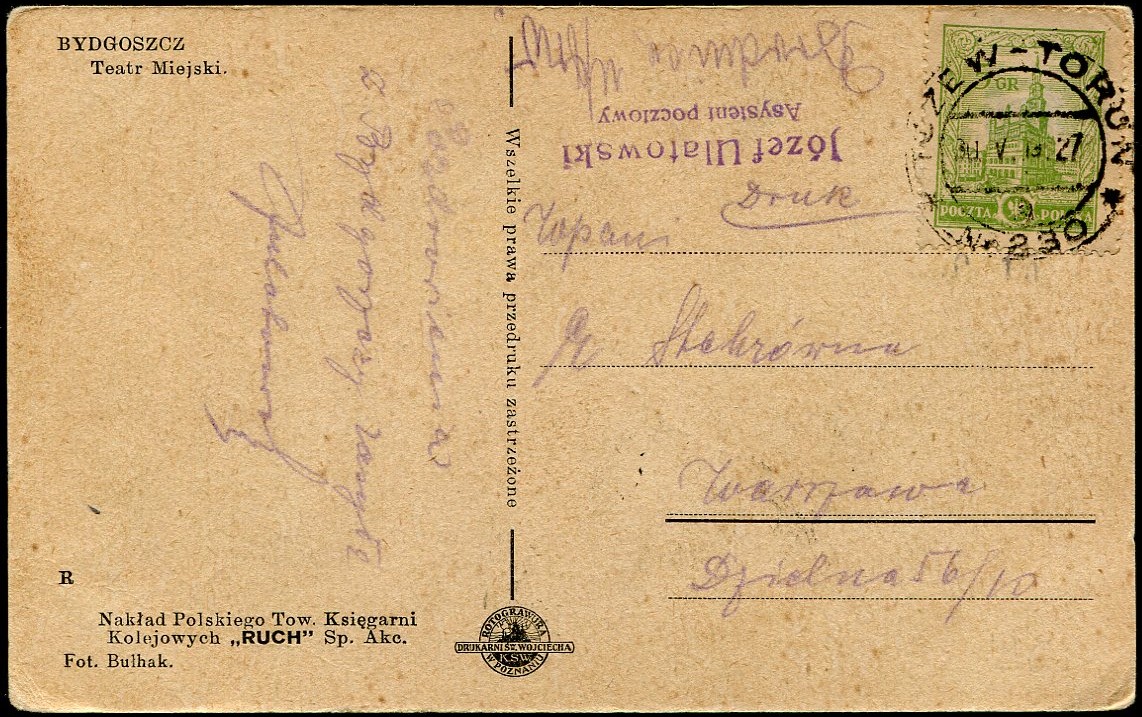 BYDGOSZCZ
Teatr Miejski.
Pozdrowienia
z Bydgoszczy
R
Nakład Polskiego Tow. Księgarni
Kolejowych „RUCH" Sp. Akc.
Fot. Bułhak.
Wszelkie prawa przedruku zastrzeżone
ROTOGRAWURA
DRUKARNI ŚW. WOJCIECHA
K.S.W.
W POZNANIU
Józef Ulatowski
Asystent pocztowy
Druk
TCZEW-TORUŃ
V 27
№ 230
GR
POCZTA POLSKA
W Pani
Stebrówna
Warszawa
Dzielna 56/10